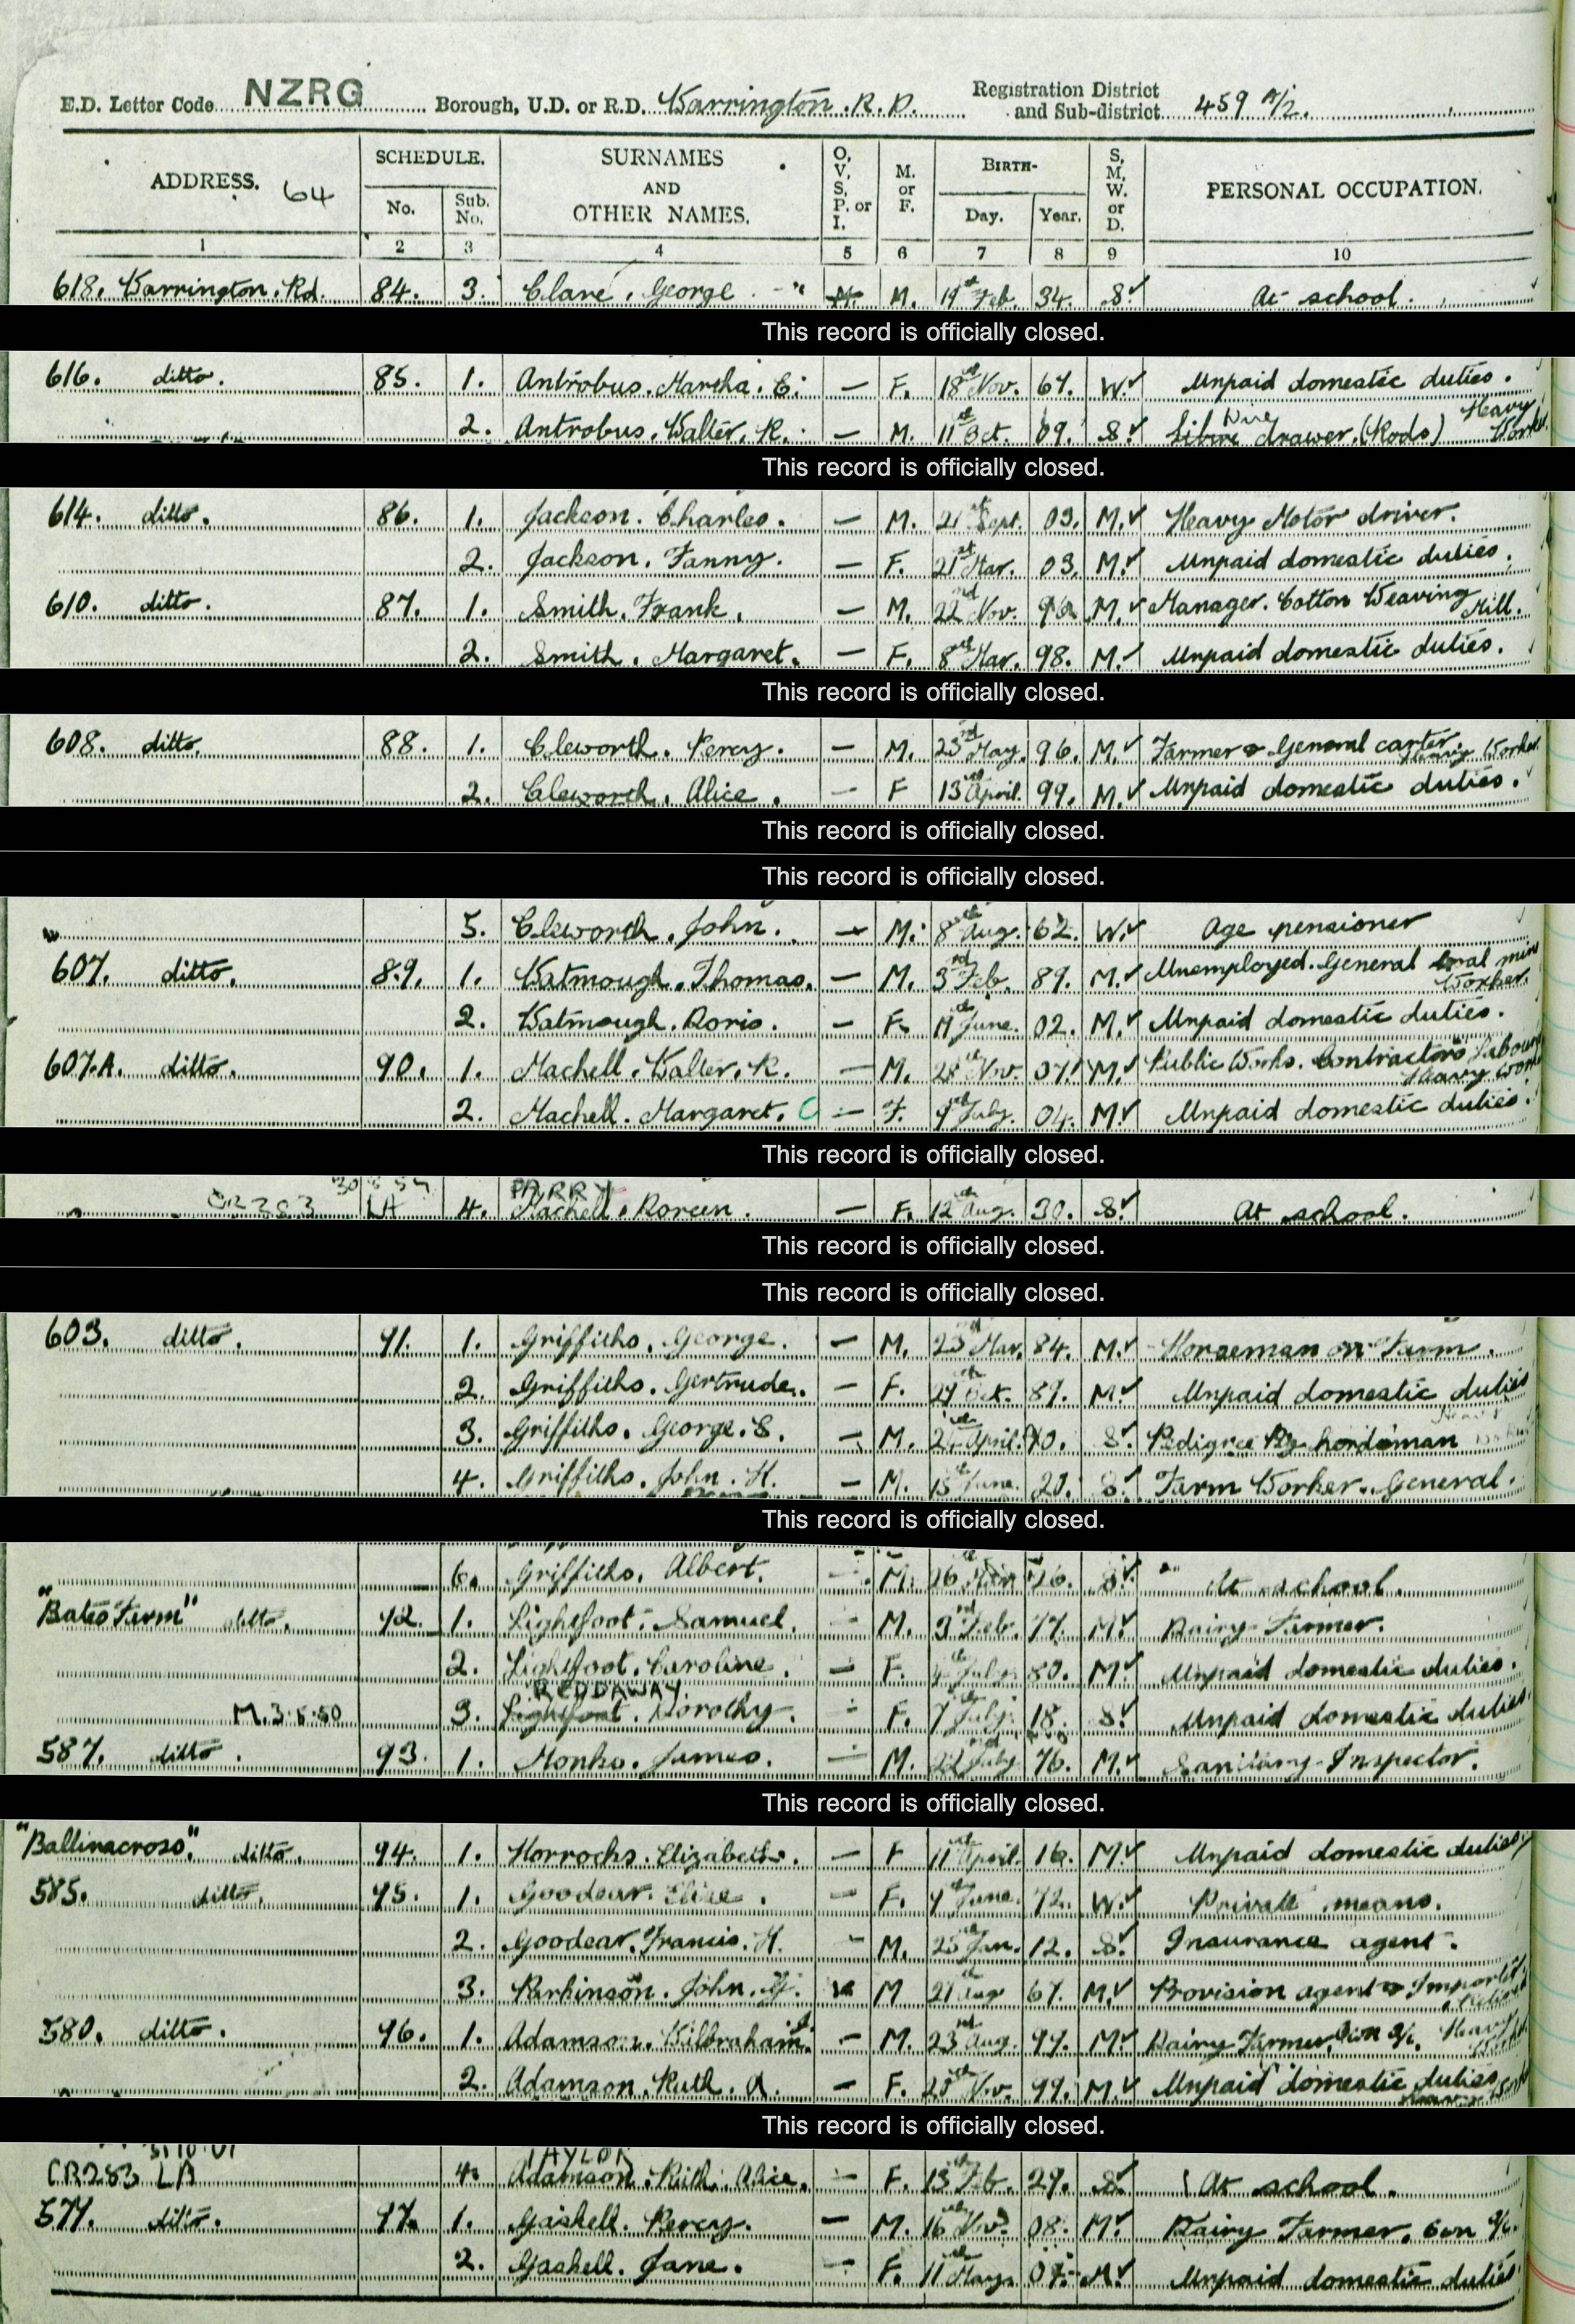 E.D. Letter Code NZRG Borough, U.D. or R.D. Warrington. R. D. Registration District and Sub-district 459 2/2.
ADDRESS. 64 SCHEDULE. No. Sub. No. SURNAMES AND OTHER NAMES. O, V, S, P. or I. M. or F. BIRTH- Day. Year. S, M, W. or D. PERSONAL OCCUPATION.
1 2 3 4 5 6 7 8 9 10
618. Warrington. Rd. 84. 3. Clare, George M. 19th Feb. 34. S. At school.
This record is officially closed.
616. ditto. 85. 1. Antrobus. Martha. E. — F. 18th Nov. 67. W. Unpaid domestic duties.
2. Antrobus. Walter. R. — M. 11th Oct. 09. S. Wire drawer. (Rods) Heavy Worker
This record is officially closed.
614. ditto. 86. 1. Jackson. Charles. — M. 21st Sept. 03. M. Heavy Motor driver.
2. Jackson. Fanny. — F. 21st Mar. 03. M. Unpaid domestic duties.
610. ditto. 87. 1. Smith. Frank. — M. 22nd Nov. M. Manager. Cotton Weaving Mill.
2. Smith. Margaret. — F. 8th Mar. 98. M. Unpaid domestic duties.
This record is officially closed.
608. ditto. 88. 1. Cleworth. Percy. — M. 23rd May. 96. M. Farmer & General carter Heavy Worker
2. Cleworth. Alice. — F 13th April. 99. M. Unpaid domestic duties.
This record is officially closed.
This record is officially closed.
5. Cleworth. John. — M. 8th Aug. 62. W. Age pensioner
607. ditto. 89. 1. Watmough. Thomas. — M. 3rd Feb. 89. M. Unemployed. General Coal mine Worker.
2. Watmough. Doris. — F. June. 02. M. Unpaid domestic duties.
607.A. ditto. 90. 1. Machell. Walter. R. — M. 28th Nov. 07. M. Public Works. Contractors Labourer Heavy Worker
2. Machell. Margaret. C — F. 9th July. 04. M. Unpaid domestic duties.
This record is officially closed.
CR283 LA PARRY
4. Machell. Doreen. — F. 12th Aug. 30. S. At school.
This record is officially closed.
This record is officially closed.
603. ditto. 91. 1. Griffiths. George. — M. 23rd Mar. 84. M. Horseman on Farm.
2. Griffiths. Gertrude. — F. Oct. 89. M. Unpaid domestic duties
3. Griffiths. George. S. — M. April. S. Pedigree Pig herdsman Heavy
4. Griffiths. John. H. — M. 15th June. S. Farm Worker. General.
This record is officially closed.
6. Griffiths. Albert. — M. 16th 26. S. At school.
"Bates Farm" ditto. 92. 1. Lightfoot. Samuel. — M. 3rd Feb. 77. M. Dairy Farmer.
2. Lightfoot. Caroline. — F. 4th July. 80. M. Unpaid domestic duties.
REDDAWAY
M.3.6.50 3. Lightfoot. Dorothy. — F. 7th July. 18. S. Unpaid domestic duties
587. ditto. 93. 1. Monks. James. — M. 22nd July 76. M. Sanitary Inspector.
This record is officially closed.
"Ballinacross". ditto. 94. 1. Horrocks. Elizabeth. — F 11th April. 16. M. Unpaid domestic duties
585. ditto. 95. 1. Goodear. Elise. — F. June. 72. W. Private means.
2. Goodear. Francis. H. — M. 25th Jan. 12. S. Insurance agent.
3. Parkinson. John. M 21st Aug 67. M. Provision agent & Importer
580. ditto. 96. 1. Adamson. Wilbraham. — M. 23rd Aug. 99. M. Dairy Farmer. Own a/c. Heavy
2. Adamson. Ruth. A. — F. Nov. 99. M. Unpaid domestic duties
This record is officially closed.
CR283 LA TAYLOR
4. Adamson. Ruth. Alice. — F. 13th Feb. 29. S. At school.
577. ditto. 97. 1. Gaskell. Percy. — M. 16th Nov. 08. M. Dairy Farmer. Own a/c.
2. Gaskell. Jane. — F. 11th May. M. Unpaid domestic duties